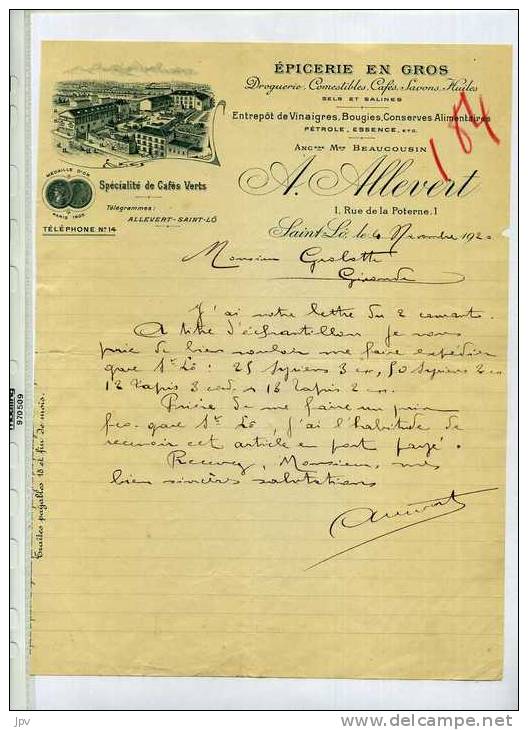 ÉPICERIE EN GROS
Droguerie, Comestibles, Cafés, Savons, Huiles
SELS ET SALINES
Entrepôt de Vinaigres, Bougies, Conserves Alimentaires
PÉTROLE, ESSENCE, ETC.
ANCNE MON BEAUCOUSIN
A. Allevert
1, Rue de la Poterne, 1
MÉDAILLE D'OR
PARIS 1900
Spécialité de Cafés Verts
Télégrammes:
ALLEVERT-SAINT-LÔ
TÉLÉPHONE No 14
187
Saint-Lô, le 4 Novembre 1920
Monsieur
Gironde
J'ai votre lettre du 2 courant.
A titre d'échantillon je vous
prie de bien vouloir me faire expédier
gare St Lô : 25 3 50 2
12 Tapis 3 12 Tapis 2
Prière de me faire un prix
fco gare St Lô, j'ai l'habitude de
recevoir cet article en port payé.
Recevez, Monsieur, mes
bien sincères salutations
Traites payables 15 et fin de mois.
970509
jpv
www.delcampe.net